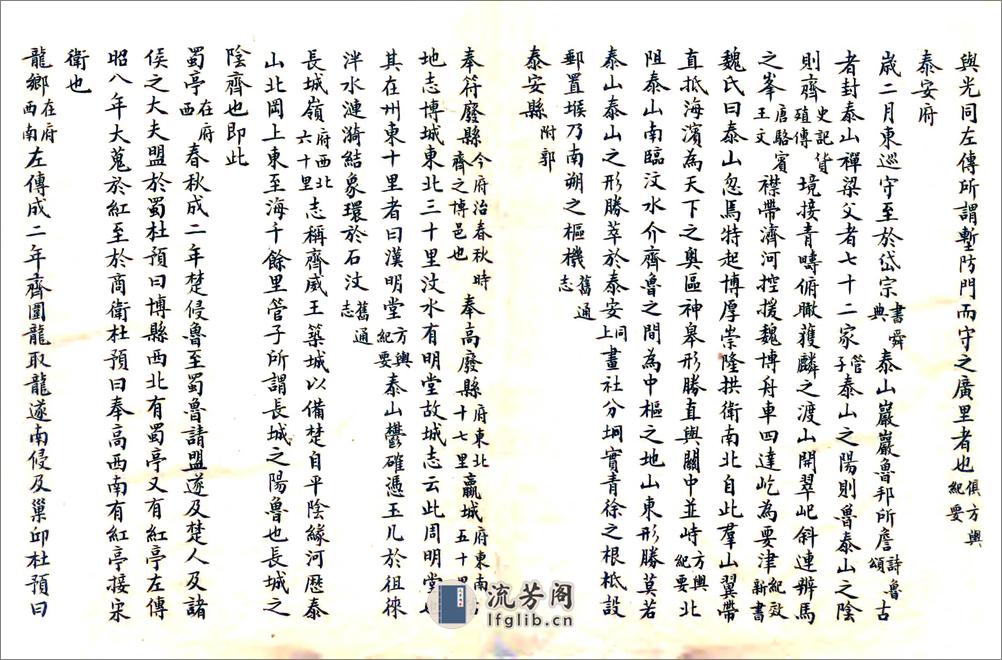 與光同左傳所謂塹防門而守之廣里者也俱方輿紀要
泰安府
歲二月東巡守至於岱宗書舜典泰山巖巖魯邦所詹詩魯頌古
者封泰山禪梁父者七十二家管子泰山之陽則魯泰山之陰
則齊史記貨殖傳境接青疇俯瞰獲麟之渡山開翠屺斜連辨馬
之峯唐駱賓王文襟帶濟河控援魏博舟車四達屹為要津紀效新書
魏氏曰泰山忽焉特起博厚崇隆拱衛南北自此羣山翼帶
直抵海濱為天下之奧區神皋形勝直與關中並峙方輿紀要北
阻泰山南臨汶水介齊魯之間為中樞之地山東形勝莫若
泰山泰山之形勝萃於泰安同上畫社分坰實青徐之根柢設
郵置堠乃南朔之樞機舊通志
泰安縣附郭
奉符廢縣今府治春秋時齊之博邑也奉高廢縣府東北十七里嬴城府東南五十里
地志博城東北三十里汶水有明堂故城志云此周明堂
其在州東十里者曰漢明堂方輿紀要泰山鬱確憑玉几於徂徠
泮水漣漪結象環於石汶舊通志
長城嶺府西北六十里志稱齊威王築城以備楚自平陰緣河歷泰
山北岡上東至海千餘里管子所謂長城之陽魯也長城之
陰齊也即此
蜀亭在府西春秋成二年楚侵魯至蜀魯請盟遂及楚人及諸
侯之大夫盟於蜀杜預曰博縣西北有蜀亭又有紅亭左傳
昭八年大蒐於紅至於商衛杜預曰奉高西南有紅亭接宋
衛也
龍鄉在府西南左傳成二年齊圍龍取龍遂南侵及巢邱杜預曰
流芳阁
lfglib.cn